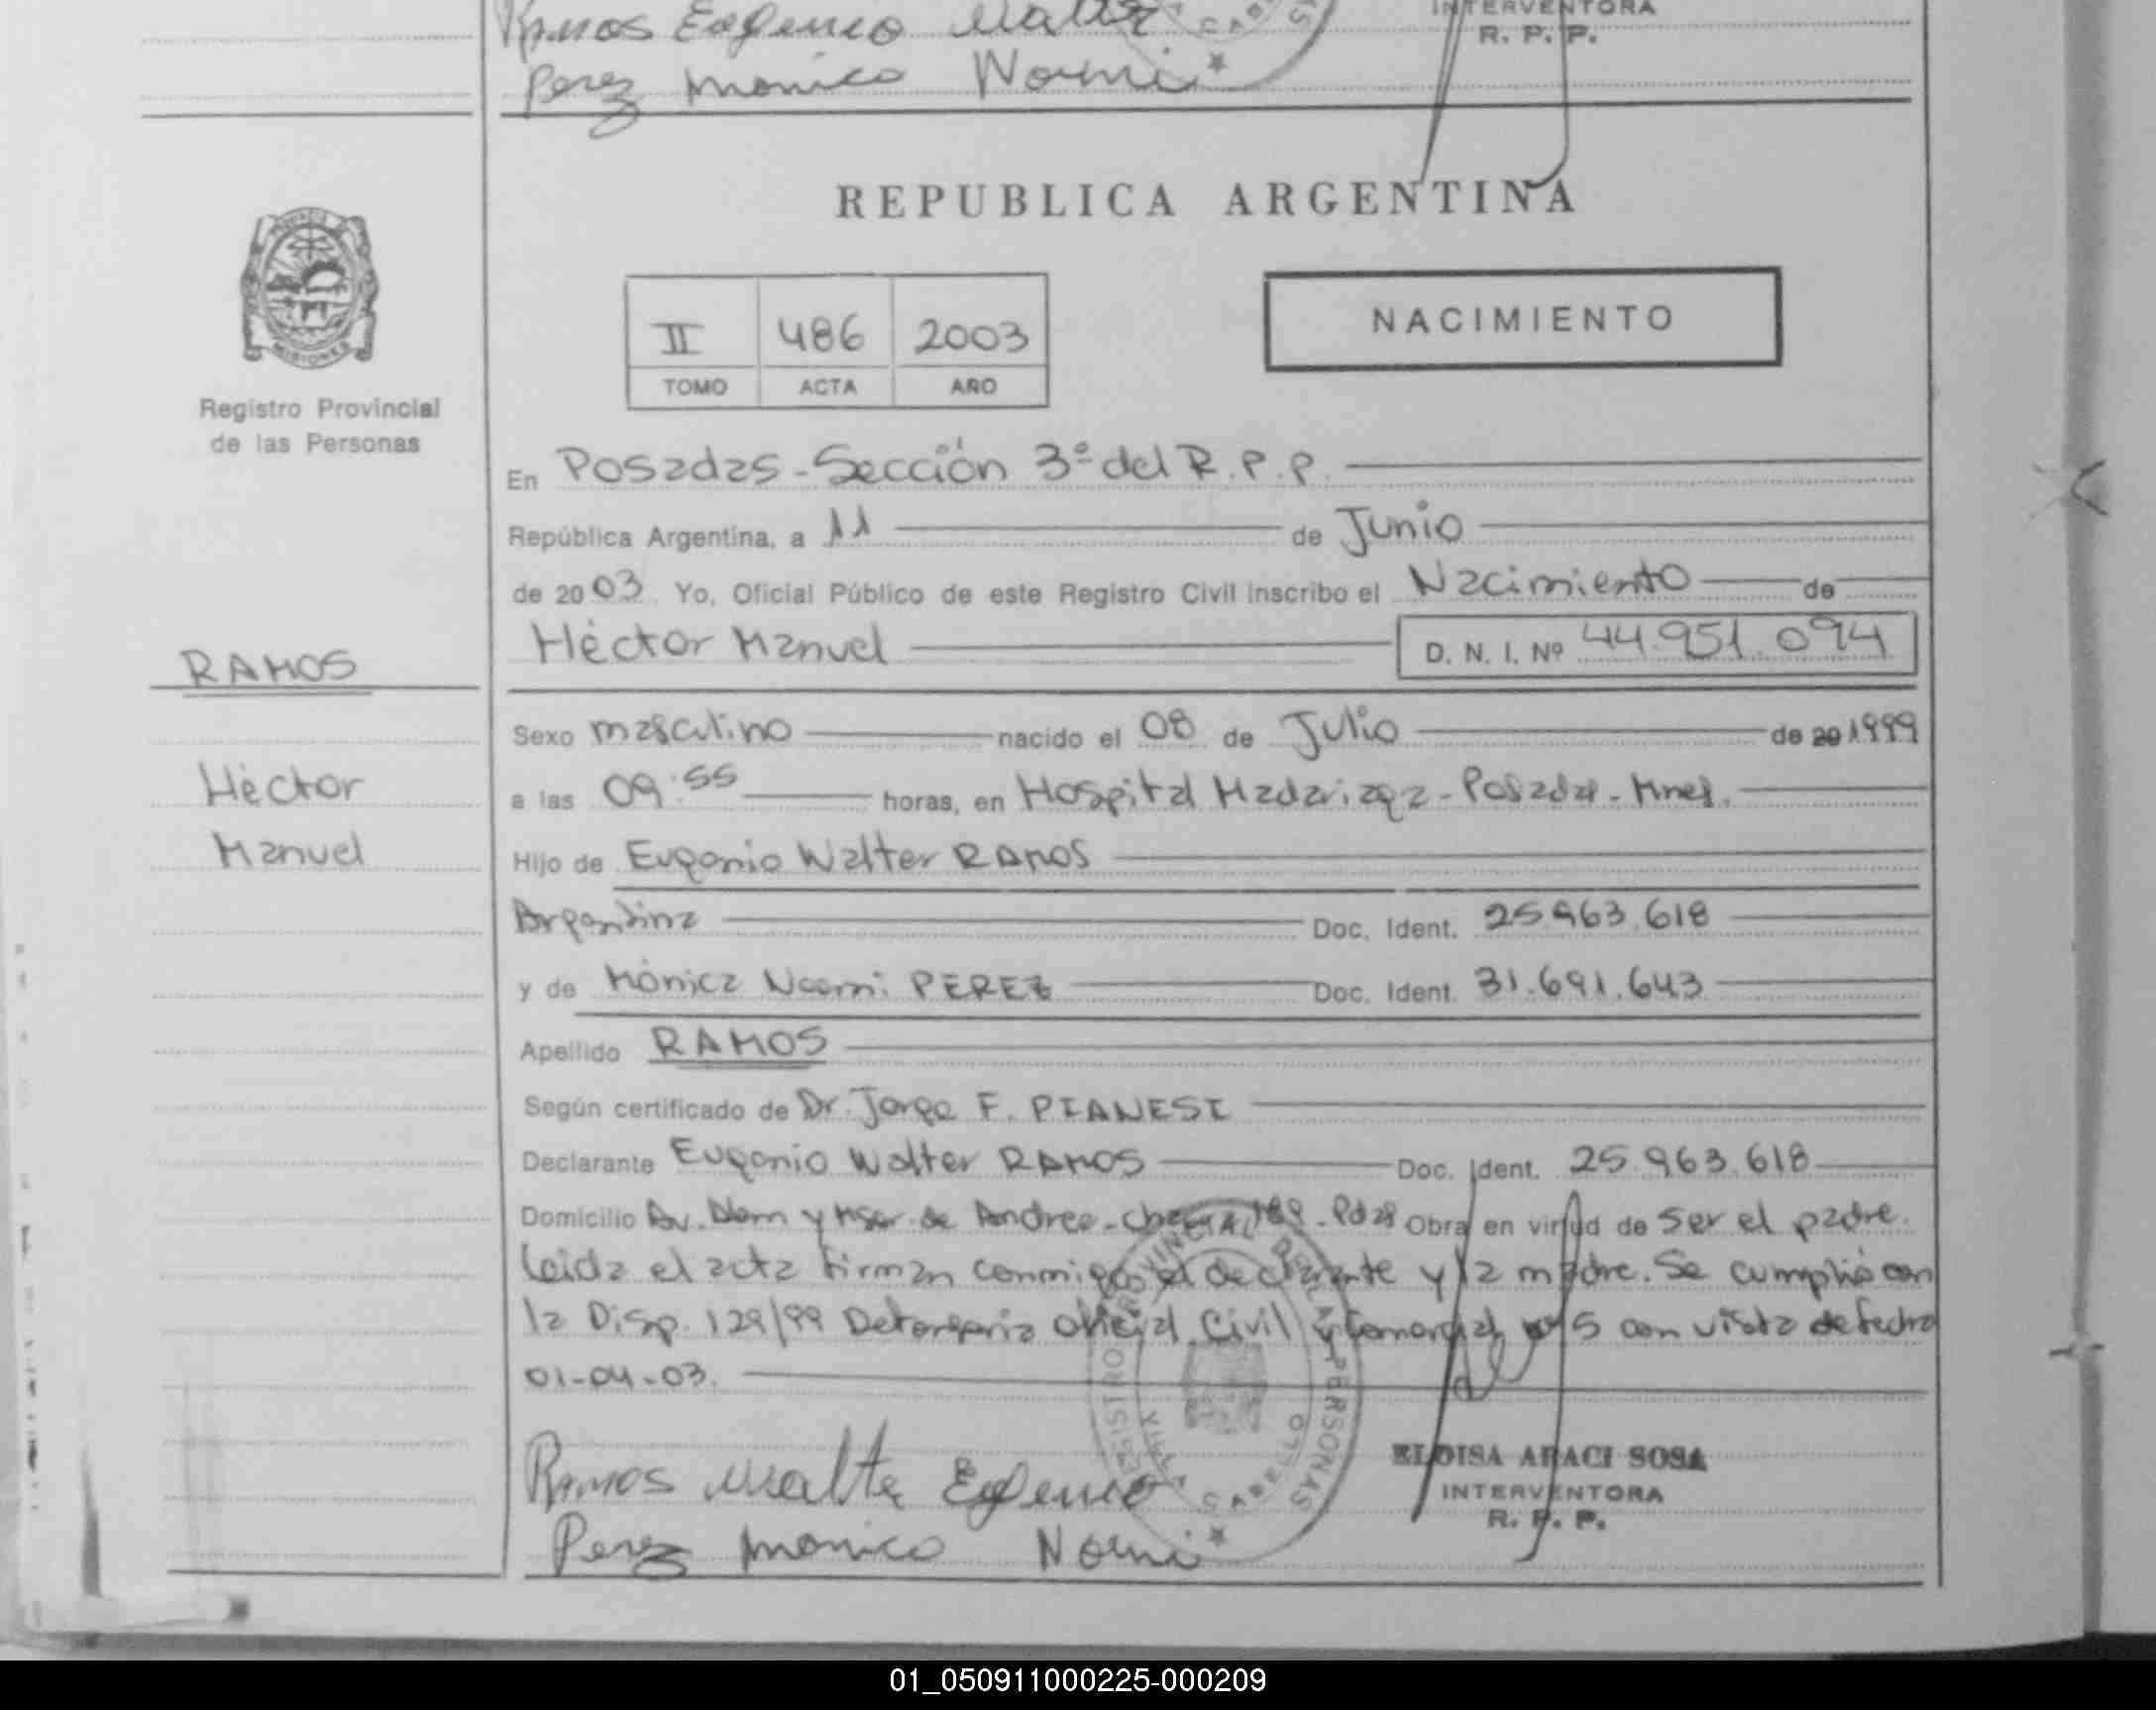 Ramos Eugenio Walter
INTERVENTORA
R. P. P.
Perez Monica Noemi
REPUBLICA ARGENTINA
MISIONES
Registro Provincial
de las Personas
II 486 2003
TOMO ACTA AÑO
NACIMIENTO
En Posadas - Sección 3º del R. P. P.
República Argentina, a 11 de Junio
de 2003 Yo, Oficial Público de este Registro Civil inscribo el Nacimiento de
Héctor Manuel D. N. I. Nº 44.951.094
RAMOS
Héctor
Manuel
Sexo masculino nacido el 08 de Julio de 20 1999
a las 09:55 horas, en Hospital Madariaga - Posadas - Mnes.
Hijo de Eugenio Walter RAMOS
Argentina Doc. Ident. 25.963.618
y de Mónica Noemi PEREZ Doc. Ident. 31.691.643
Apellido RAMOS
Según certificado de Dr. Jorge F. PIANESI
Declarante Eugenio Walter RAMOS Doc. Ident. 25.963.618
Domicilio Av. y de Andrea - 189 - Pdas Obra en virtud de ser el padre.
Leida el acta firman conmigo el declarante y la madre. Se cumplió con
la Disp. 129/99 Defensoria Oficial Civil y Comercial nº 5 con vista de fecha
01-04-03.
Ramos Walter Eugenio
Perez Monica Noemi
REGISTRO PROVINCIAL DE LAS PERSONAS
VILLA CABELLO
ELOISA ARACI SOSA
INTERVENTORA
R. P. P.
01_050911000225-000209